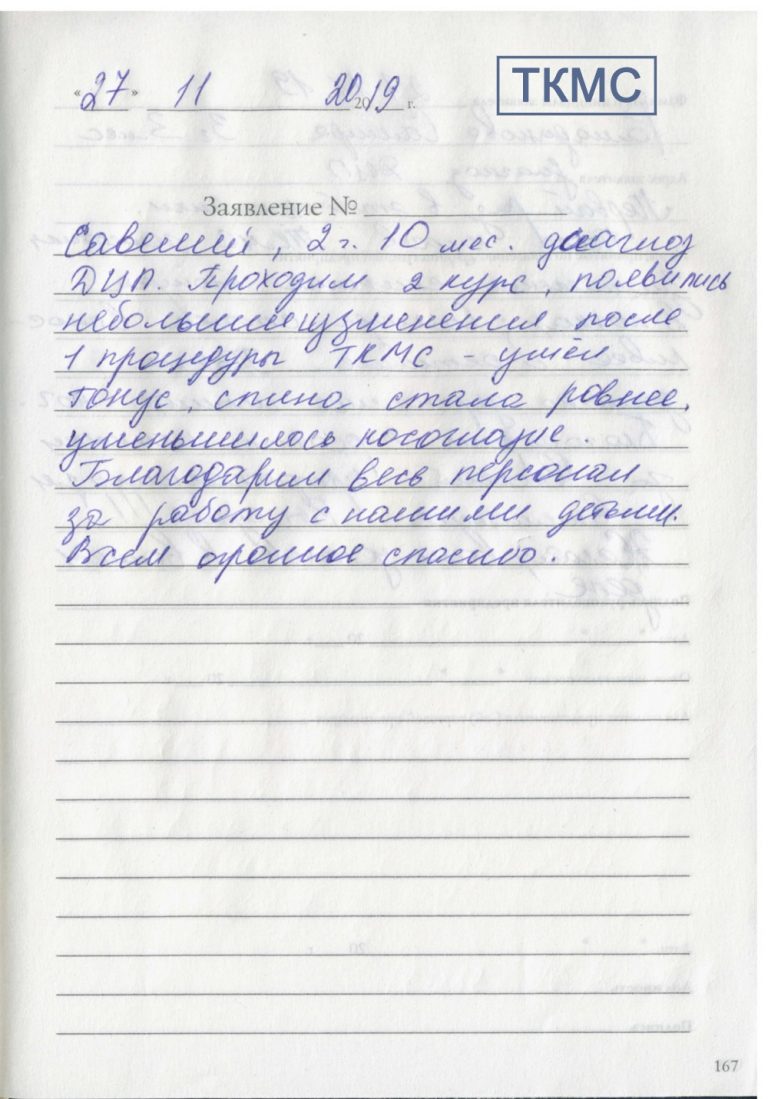 "27" 11 2019 г.
ТКМС
Заявление №
Савелий, 2 г. 10 мес. диагноз
ДЦП. Проходим 2 курс, появились
небольшие изменения после
1 процедуры ТКМС - ушёл
тонус, спина стала ровнее,
уменьшилось косоглазие.
Благодарим весь персонал
за работу с нашими детьми.
Всем огромное спасибо.
167